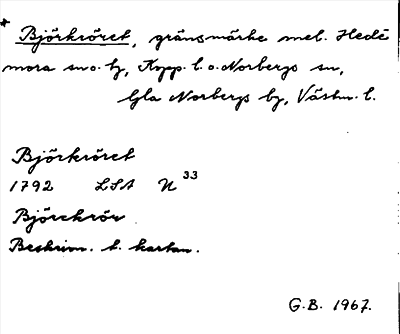 Björkröret, gränsmärke mel. Hede
mora sn o. by, Kopp. l. o. Norbergs sn,
Gla Norbergs by, Västm. l.
Björkröret
1792 LSA U 33
Björckrör
Beskrivn. t. kartan.
G.B. 1967.